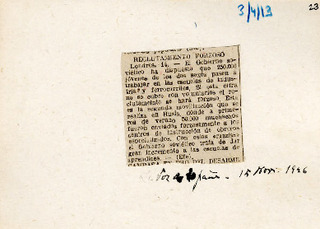 3/4/13
23
RECLUTAMIENTO FORZOSO
Londres, 14. — El Gobierno so-
viético ha dispuesto que 250.000
jóvenes de los dos sexos pasen a
trabajar en las escuelas de indus-
trias y ferrocarriles. Si esta cifra
no es cubre con voluntarios el re-
clutamiento se hará forzoso. Este
es la segunda movilización que se
realiza en Rusia, donde a prime-
ros de verano 50.000 muchachos
fueron enviados forzosamente a los
centros de instrucción de obreros
especializados. Con estas medidas
el Gobierno soviético trata de dar
gran incremento a las escuelas de
aprendices. — (Efe).
DEL DESARME
de España. — 15 Nov. 1946